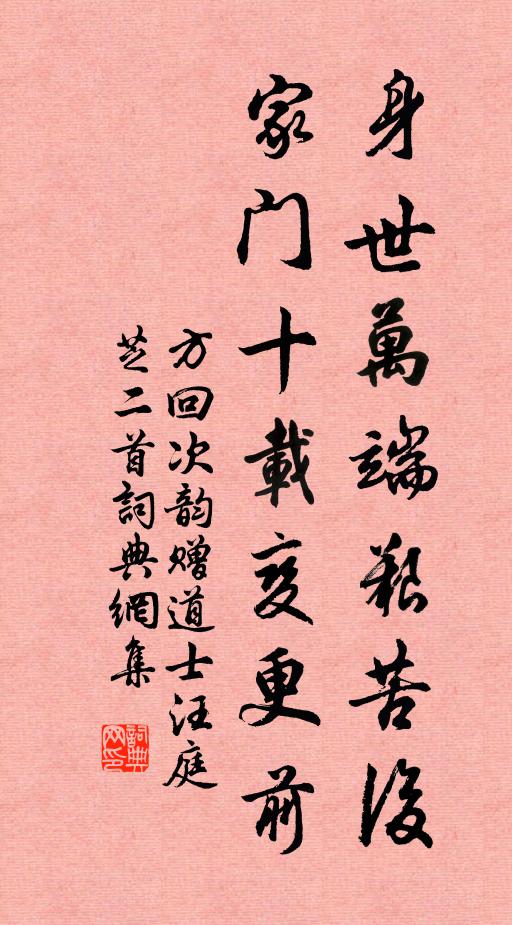 身世萬端艱苦後
家门十載变更前
方回次韵赠道士汪庭
芝二首詞典網集
詞典
网印